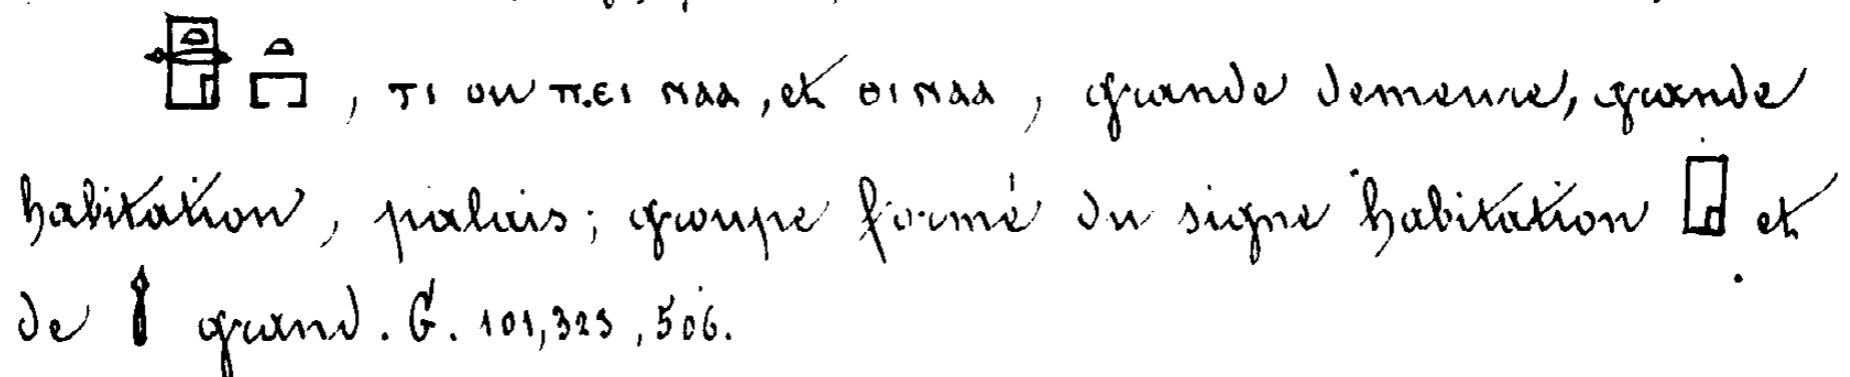 , ⲧⲓ ou ⲡ.ⲉⲓ ⲛⲁⲁ, et ⲑⲓ ⲛⲁⲁ, grande demeure, grande
habitation, palais; groupe formé du signe habitation 𓉗 et
de 𓉻 grand. G. 101, 323, 506.